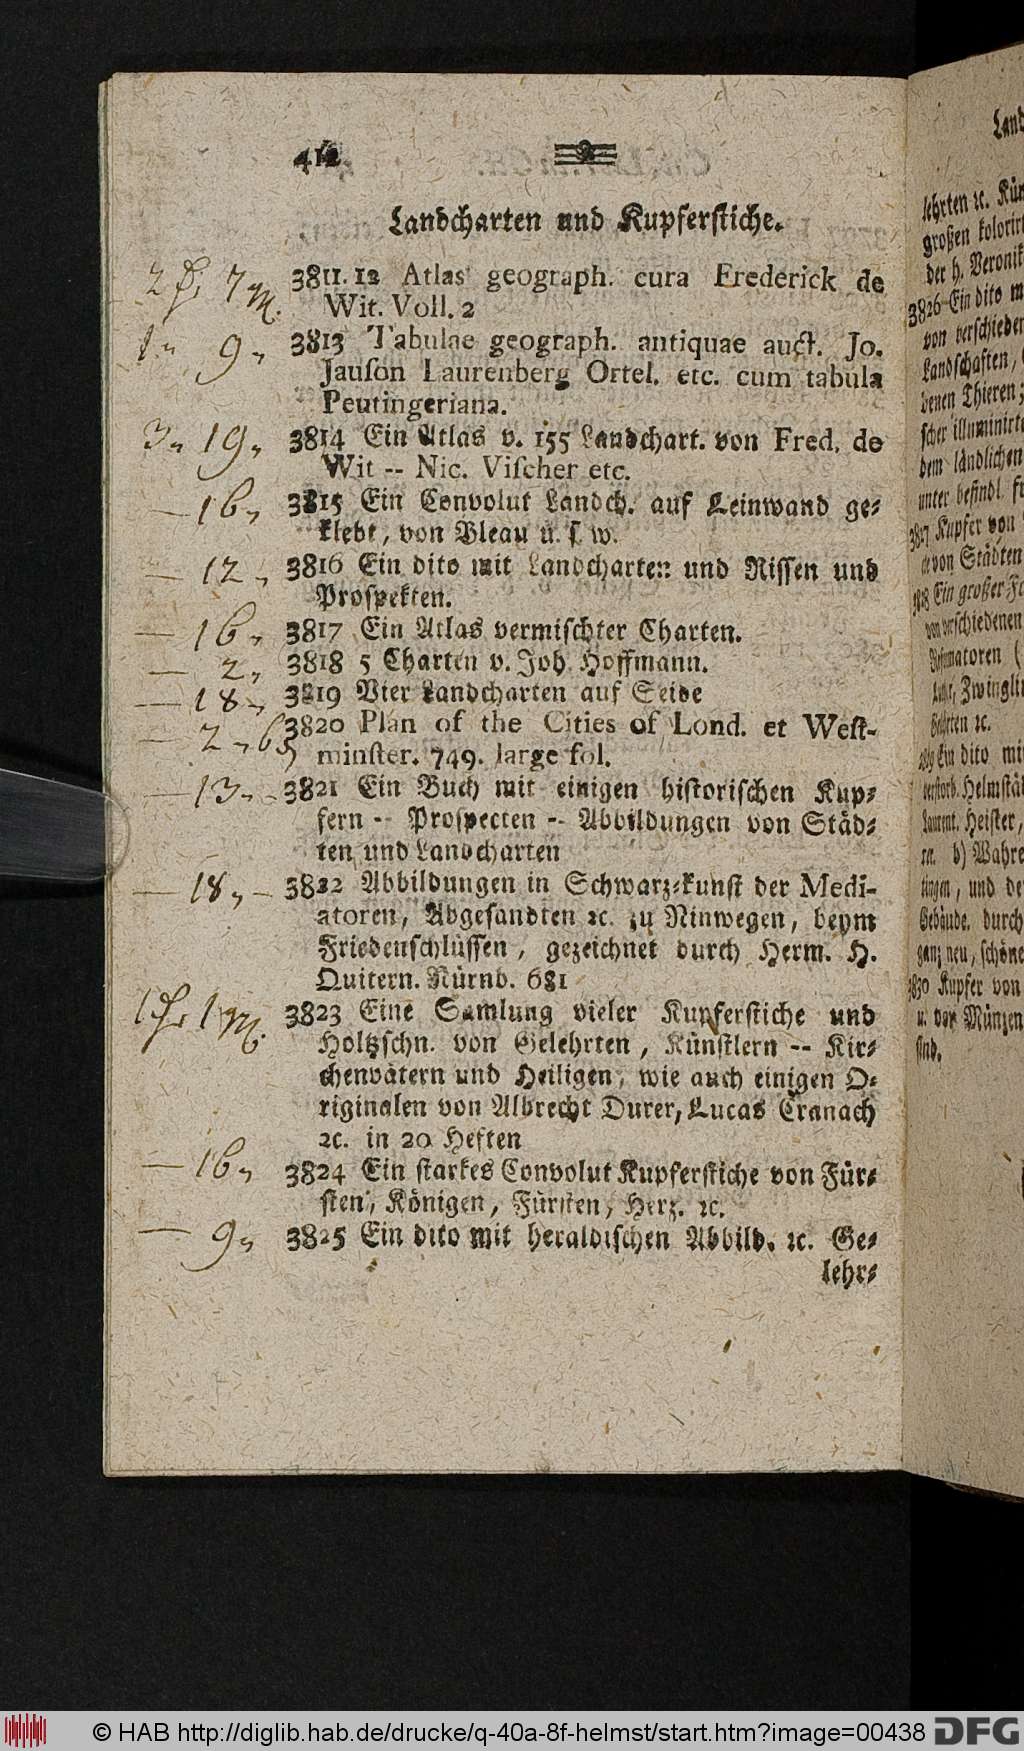 412
Landcharten und Kupferstiche.
3811.12 Atlas geograph. cura Frederick de
Wit. Voll. 2
3813 Tabulae geograph. antiquae auct. Jo.
Jauson Laurenberg Ortel. etc. cum tabula
Peutingeriana.
3814 Ein Atlas v. 155 Landchart. von Fred. de
Wit -- Nic. Viſcher etc.
3815 Ein Convolut Landch. auf Leinwand ge-
klebt, von Bleau u. ſ. w.
3816 Ein dito mit Landcharten und Riſſen und
Proſpekten.
3817 Ein Atlas vermiſchter Charten.
3818 5 Charten v. Joh. Hoffmann.
3819 Vier Landcharten auf Seide
3820 Plan of the Cities of Lond. et Weſt-
minſter. 749. large fol.
3821 Ein Buch mit einigen hiſtoriſchen Kup-
fern -- Proſpecten -- Abbildungen von Städ-
ten und Landcharten
3822 Abbildungen in Schwarz-kunſt der Medi-
atoren, Abgeſandten ꝛc. zu Ninwegen, beym
Friedenſchlüſſen, gezeichnet durch Herm. H.
Quitern. Nürnb. 681
3823 Eine Samlung vieler Kupferſtiche und
Holtzſchn. von Gelehrten, Künſtlern -- Kir-
chenvätern und Heiligen, wie auch einigen O-
riginalen von Albrecht Durer, Lucas Cranach
ꝛc. in 20 Heften
3824 Ein ſtarkes Convolut Kupferſtiche von Für-
ſten, Königen, Fürſten, Herz. ꝛc.
3825 Ein dito mit heraldiſchen Abbild. ꝛc. Ge-
lehr-
2 7
1 9
3 19
16
12
16
2
18
2 6
13
18
1 1
16
9
Land
lehrten ꝛc. Kü
großen kolorirt
der h. Veronik
3826 Ein dito m
von verſchieden
Landſchaften,
denen Thieren;
ſcher illuminirte
dem ländlichen
unter befindl. f
3827 Kupfer von
von Städten
3828 Ein großer
von verſchiedenen
matoren (
Zwingli
Gelehrten ꝛc.
3829 Ein dito mi
Helmſtä
Laurent. Heiſter,
ꝛc. b) Wahre
und de
Gebäude. durch
ganz neu, ſchöne
3830 Kupfer von
u. von Münzen
ſind.
© HAB http://diglib.hab.de/drucke/q-40a-8f-helmst/start.htm?image=00438
DFG